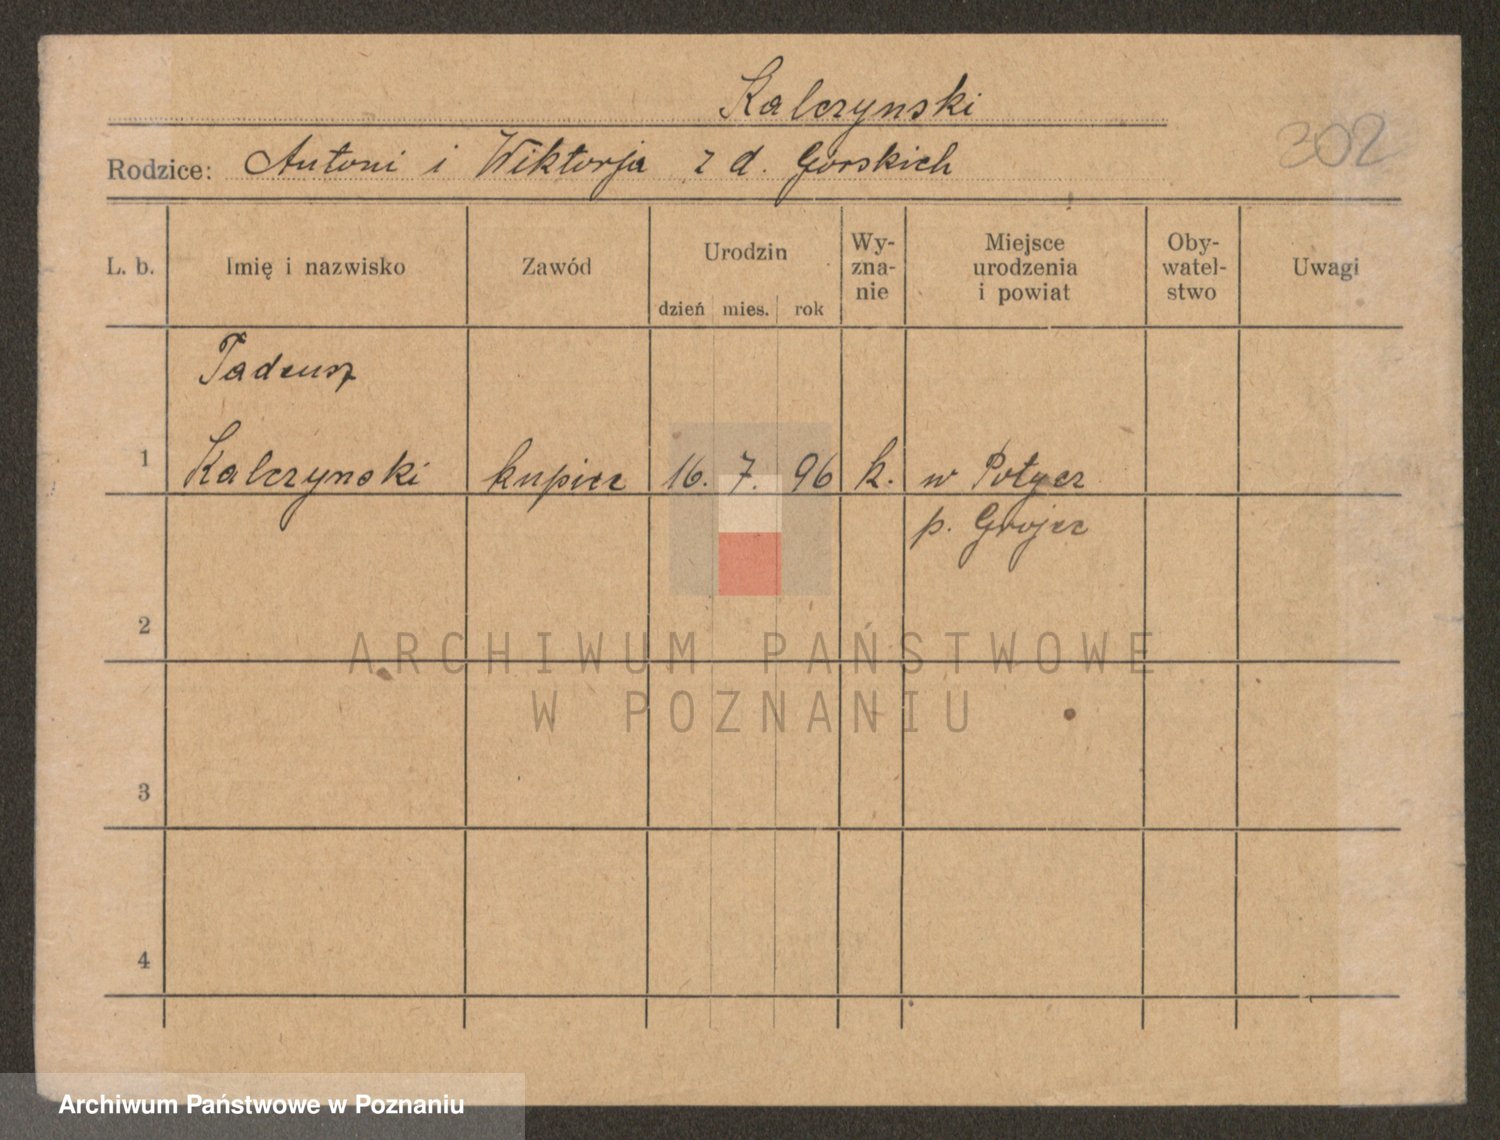 Kalczynski
302
Rodzice: Antoni i Wiktorja z d. Gorskich
L. b.
Imię i nazwisko
Zawód
Urodzin
dzień mies. rok
Wy-
zna-
nie
Miejsce
urodzenia
i powiat
Oby-
watel-
stwo
Uwagi
Tadeusz
1 Kalczynski kupiec 16. 7. 96 k. w Potycz
p. Grojec
2
ARCHIWUM PAŃSTWOWE
W POZNANIU
3
4
Archiwum Państwowe w Poznaniu